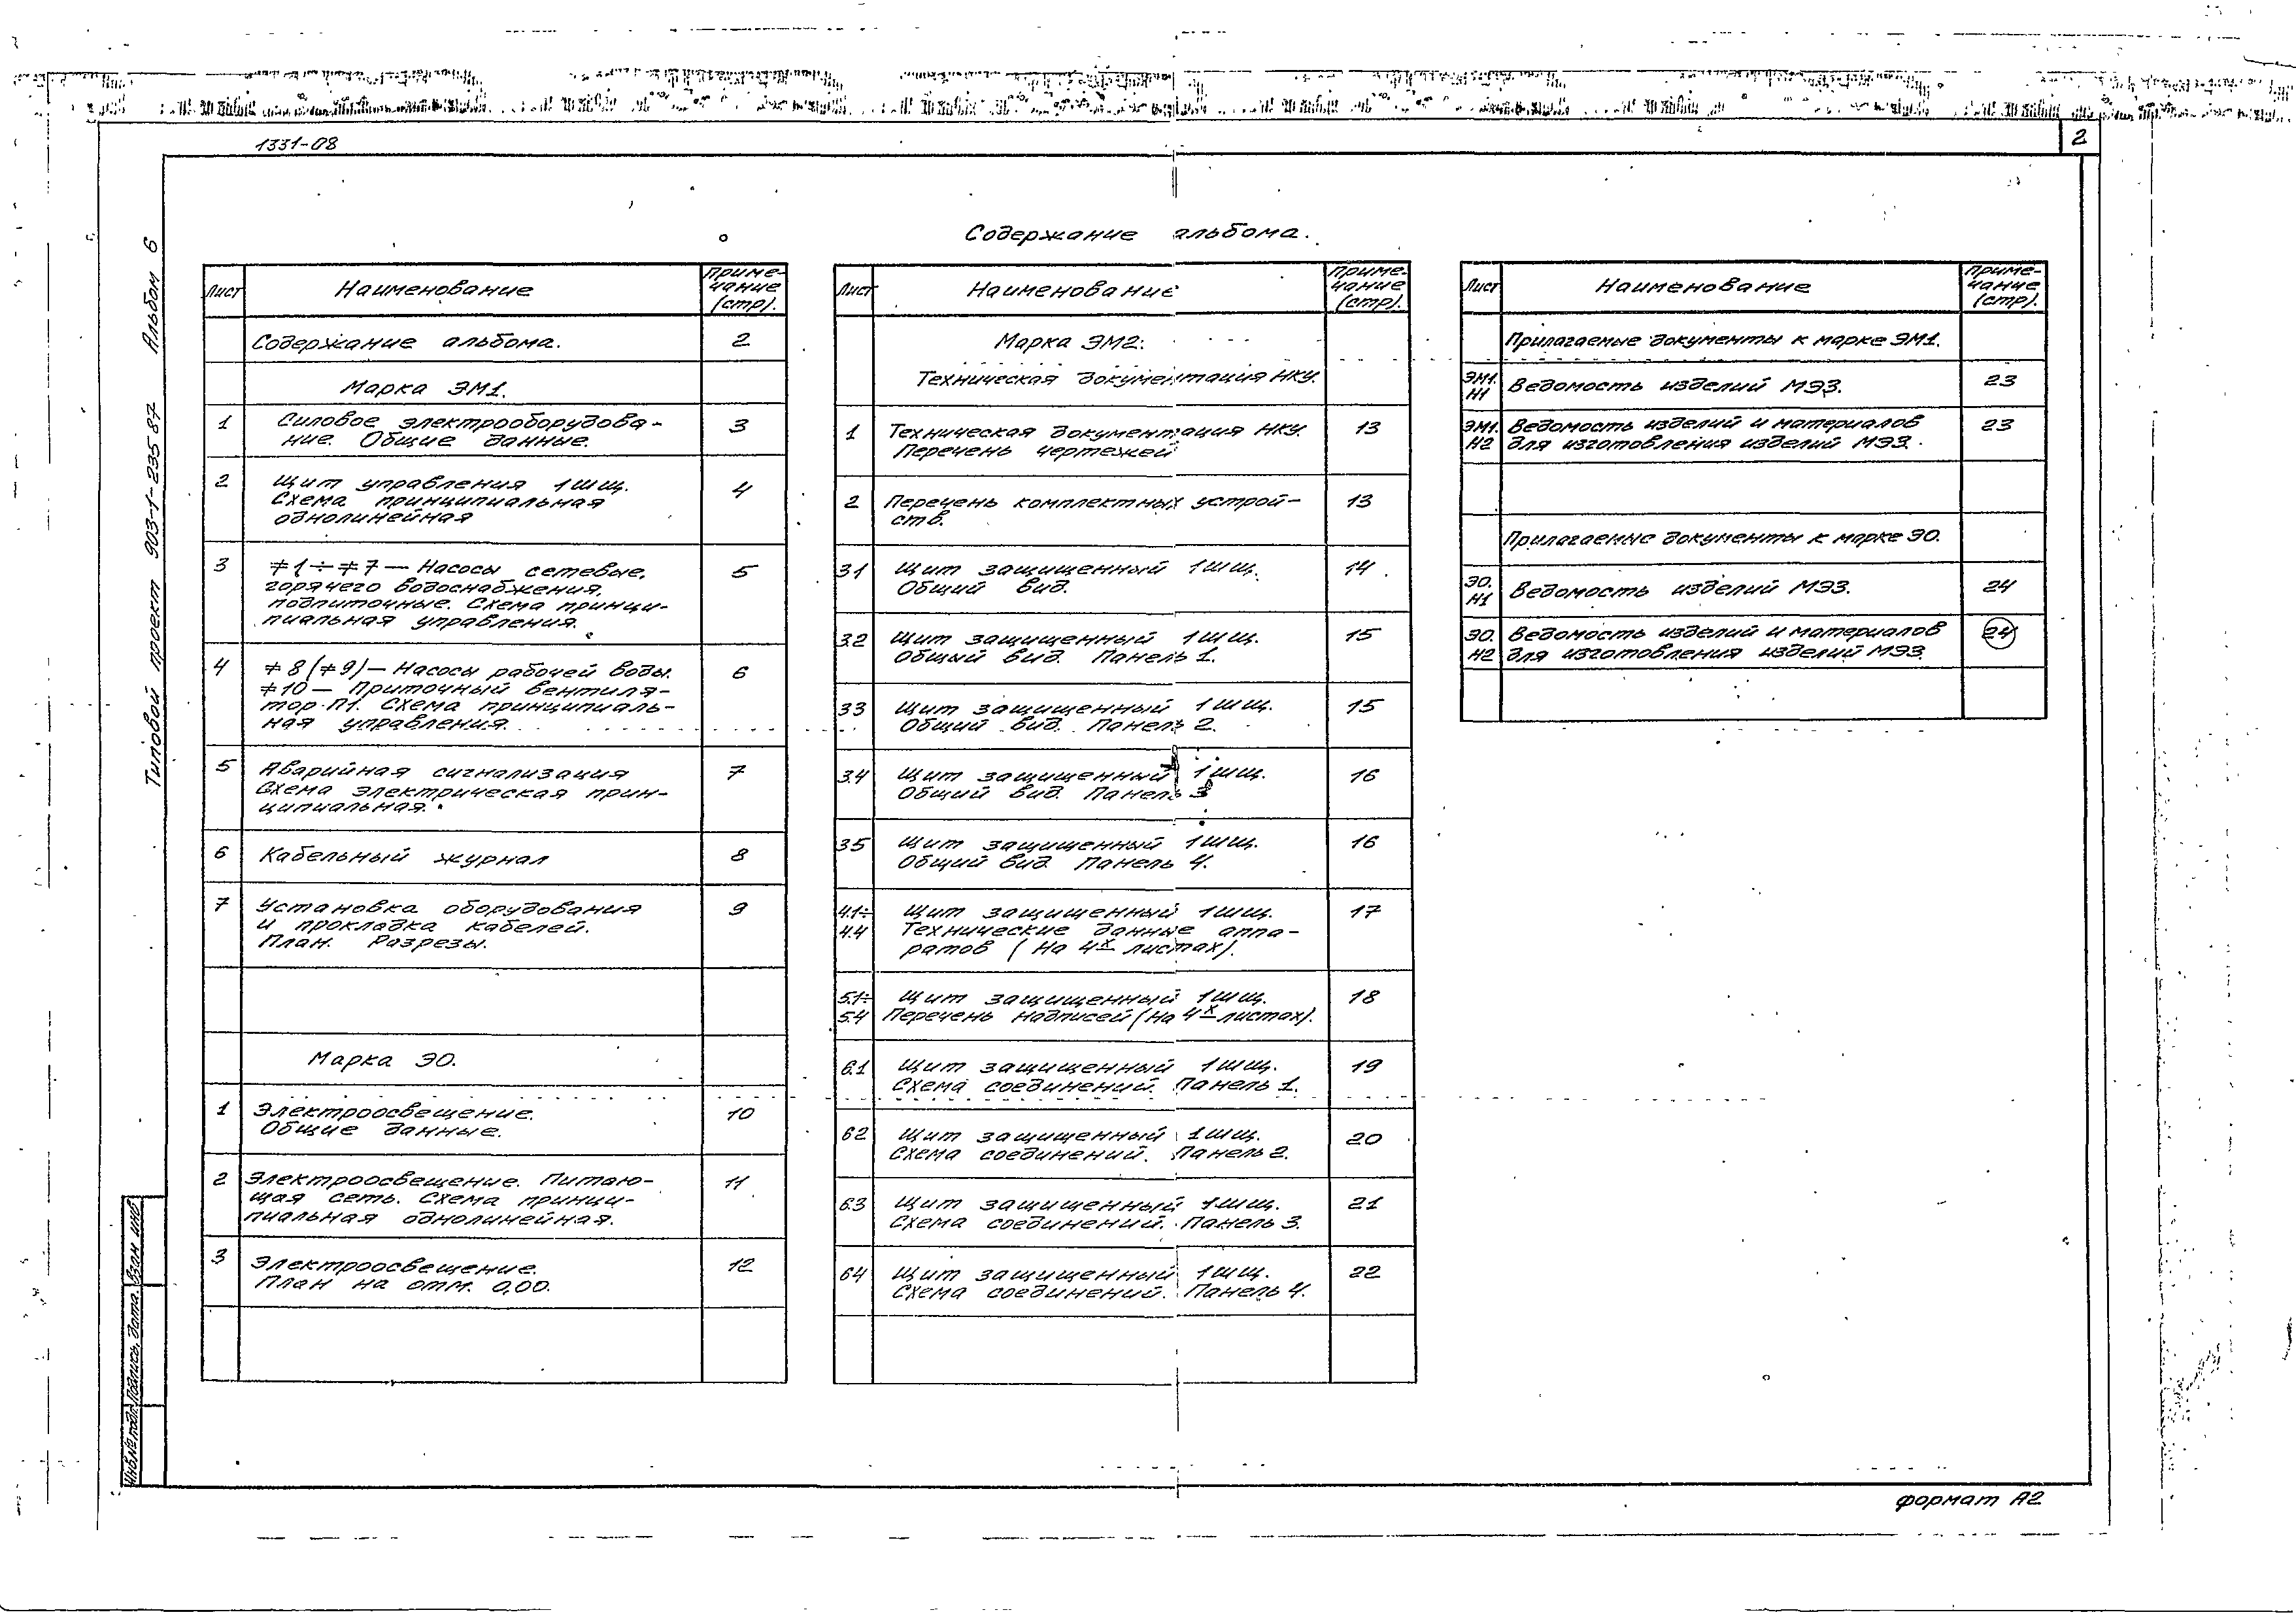 1331-08
2
Типовой проект 903-1-235 87 Альбом 6
Содержание альбома.
Лист
Наименование
Приме-
чание
(стр).
Содержание альбома. 2
Марка ЭМ1.
1 Силовое электрооборудова- 3
ние. Общие данные.
2 Щит управления 1ШЩ. 4
Схема принципиальная
однолинейная
3 ≠1÷≠7 — Насосы сетевые, 5
горячего водоснабжения,
подпиточные. Схема принци-
пиальная управления.
4 ≠8(≠9) — Насосы рабочей воды. 6
≠10 — Приточный вентиля-
тор П1. Схема принципиаль-
ная управления.
5 Аварийная сигнализация 7
Схема электрическая прин-
ципиальная.
6 Кабельный журнал 8
7 Установка оборудования 9
и прокладка кабелей.
План. Разрезы.
Марка ЭО.
1 Электроосвещение. 10
Общие данные.
2 Электроосвещение. Питаю- 11
щая сеть. Схема принци-
пиальная однолинейная.
3 Электроосвещение. 12
План на отм. 0,00.
Лист
Наименование
Приме-
чание
(стр).
Марка ЭМ2.
Техническая документация НКУ.
1 Техническая документация НКУ. 13
Перечень чертежей
2 Перечень комплектных устрой- 13
ств.
3.1 Щит защищенный 1ШЩ. 14
Общий вид.
3.2 Щит защищенный 1ШЩ. 15
Общый вид. Панель 1.
3.3 Щит защищенный 1ШЩ. 15
Общий вид. Панель 2.
3.4 Щит защищенный 1ШЩ. 16
Общий вид. Панель 3
3.5 Щит защищенный 1ШЩ. 16
Общий вид. Панель 4.
4.1÷ Щит защищенный 1ШЩ. 17
4.4 Технические данные аппа-
ратов (На 4х листах).
5.1÷ Щит защищенный 1ШЩ. 18
5.4 Перечень надписей (На 4х листах).
6.1 Щит защищенный 1ШЩ. 19
Схема соединений. Панель 1.
6.2 Щит защищенный 1ШЩ. 20
Схема соединений. Панель 2.
6.3 Щит защищенный 1ШЩ. 21
Схема соединений. Панель 3.
6.4 Щит защищенный 1ШЩ. 22
Схема соединений. Панель 4.
Лист
Наименование
Приме-
чание
(стр).
Прилагаемые документы к марке ЭМ1.
ЭМ1. Ведомость изделий МЭЗ. 23
Н1
ЭМ1. Ведомость изделий и материалов 23
Н2 для изготовления изделий МЭЗ.
Прилагаемые документы к марке ЭО.
ЭО. Ведомость изделий МЭЗ. 24
Н1
ЭО. Ведомость изделий и материалов 24
Н2 для изготовления изделий МЭЗ.
Инв.№ подл. Подпись, дата. Взам инв
формат А2